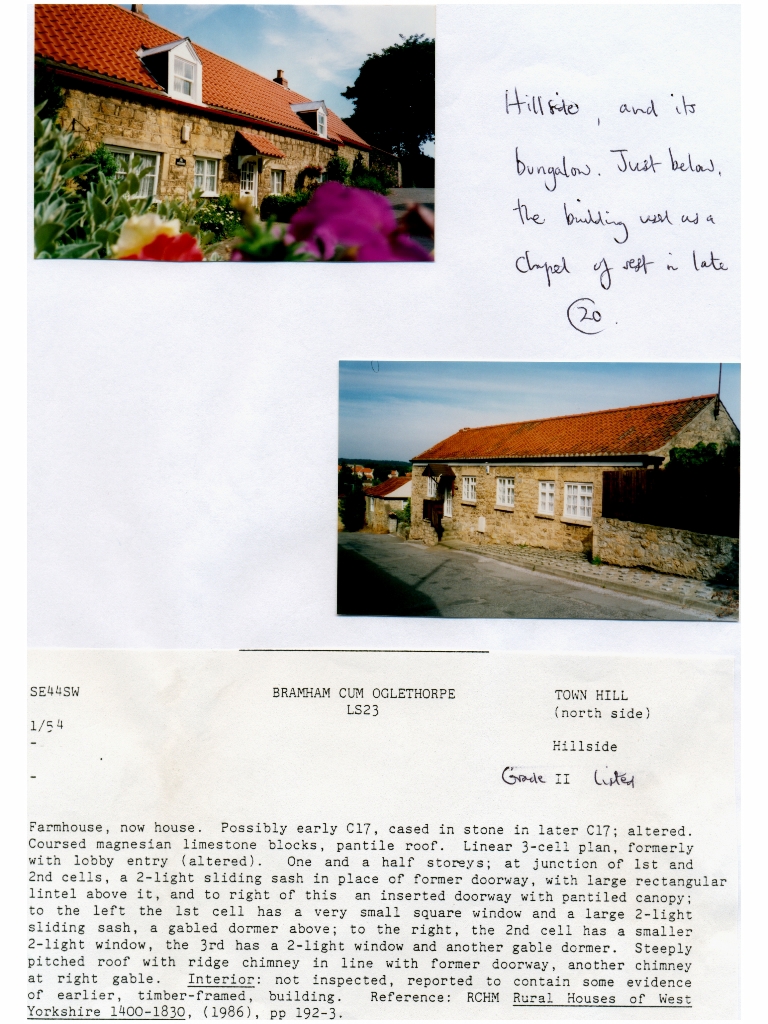 Hillside, and its
bungalow. Just below,
the building used as a
chapel of rest in late
20.
SE44SW
BRAMHAM CUM OGLETHORPE
TOWN HILL
LS23
(north side)
1/54
-
Hillside
-
Grade II Listed
Farmhouse, now house. Possibly early C17, cased in stone in later C17; altered.
Coursed magnesian limestone blocks, pantile roof. Linear 3-cell plan, formerly
with lobby entry (altered). One and a half storeys; at junction of 1st and
2nd cells, a 2-light sliding sash in place of former doorway, with large rectangular
lintel above it, and to right of this an inserted doorway with pantiled canopy;
to the left the 1st cell has a very small square window and a large 2-light
sliding sash, a gabled dormer above; to the right, the 2nd cell has a smaller
2-light window, the 3rd has a 2-light window and another gable dormer. Steeply
pitched roof with ridge chimney in line with former doorway, another chimney
at right gable. Interior: not inspected, reported to contain some evidence
of earlier, timber-framed, building. Reference: RCHM Rural Houses of West
Yorkshire 1400-1830, (1986), pp 192-3.